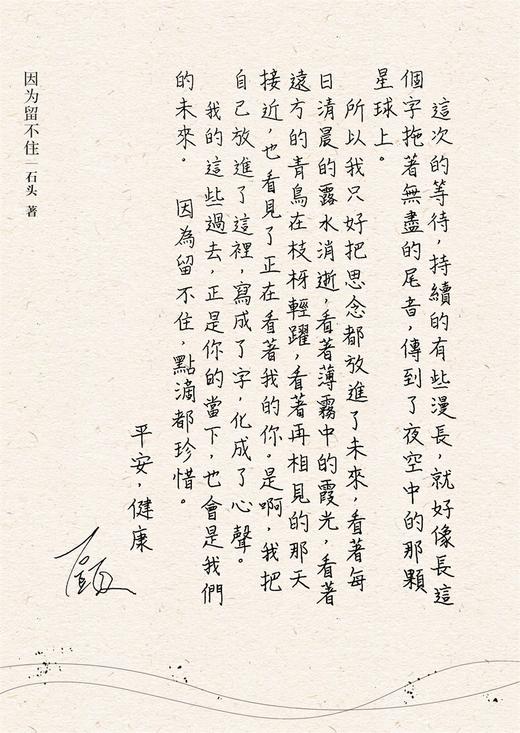 這次的等待，持續的有些漫長，就好像長這
個字拖著無盡的尾音，傳到了夜空中的那顆
星球上。
所以我只好把思念都放進了未來，看著每
日清晨的露水消逝，看著薄霧中的霞光，看著
遠方的青鳥在枝枒輕躍，看著再相見的那天
接近，也看見了正在看著我的你。是啊，我把
自己放進了這裡，寫成了字，化成了心聲。
我的這些過去，正是你的當下，也會是我們
的未來。 因為留不住，點滴都珍惜。
平安，健康
因为留不住｜石头 著